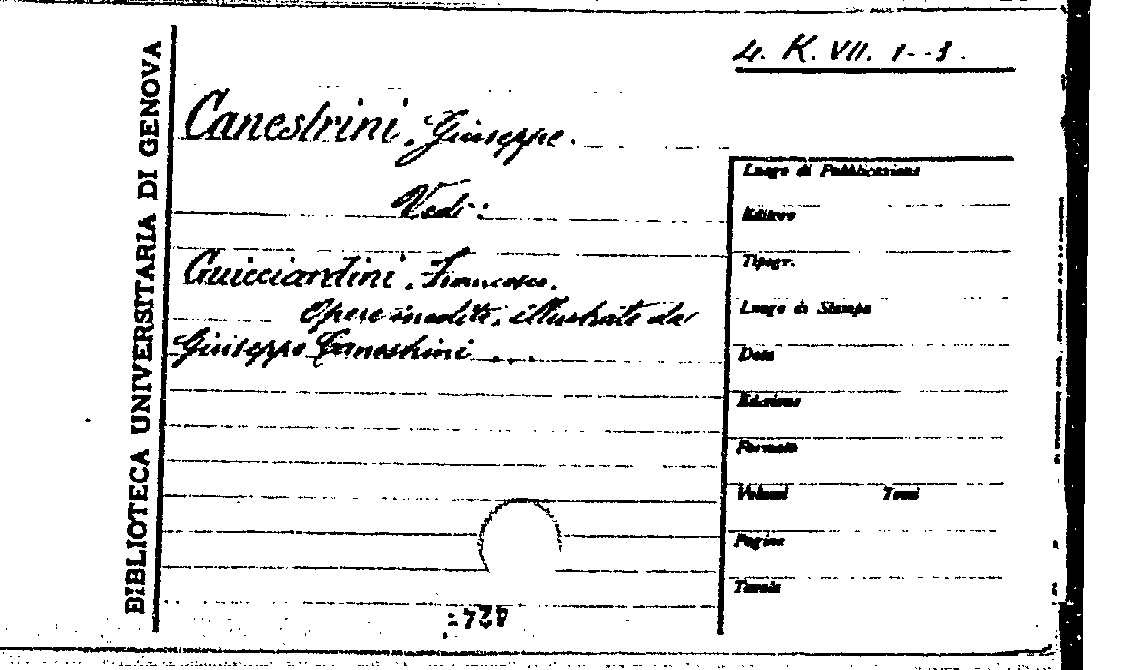 4. K. VII. 1--3.
BIBLIOTECA UNIVERSITARIA DI GENOVA
Canestrini, Giuseppe.
Vedi:
Guicciardini, Francesco.
Opere inedite, illustrate da
Giuseppe Canestrini ...
Luogo di Pubblicazione
Editore
Tipogr.
Luogo di Stampa
Data
Edizione
Formato
Volumi Tomi
Pagine
Tavole